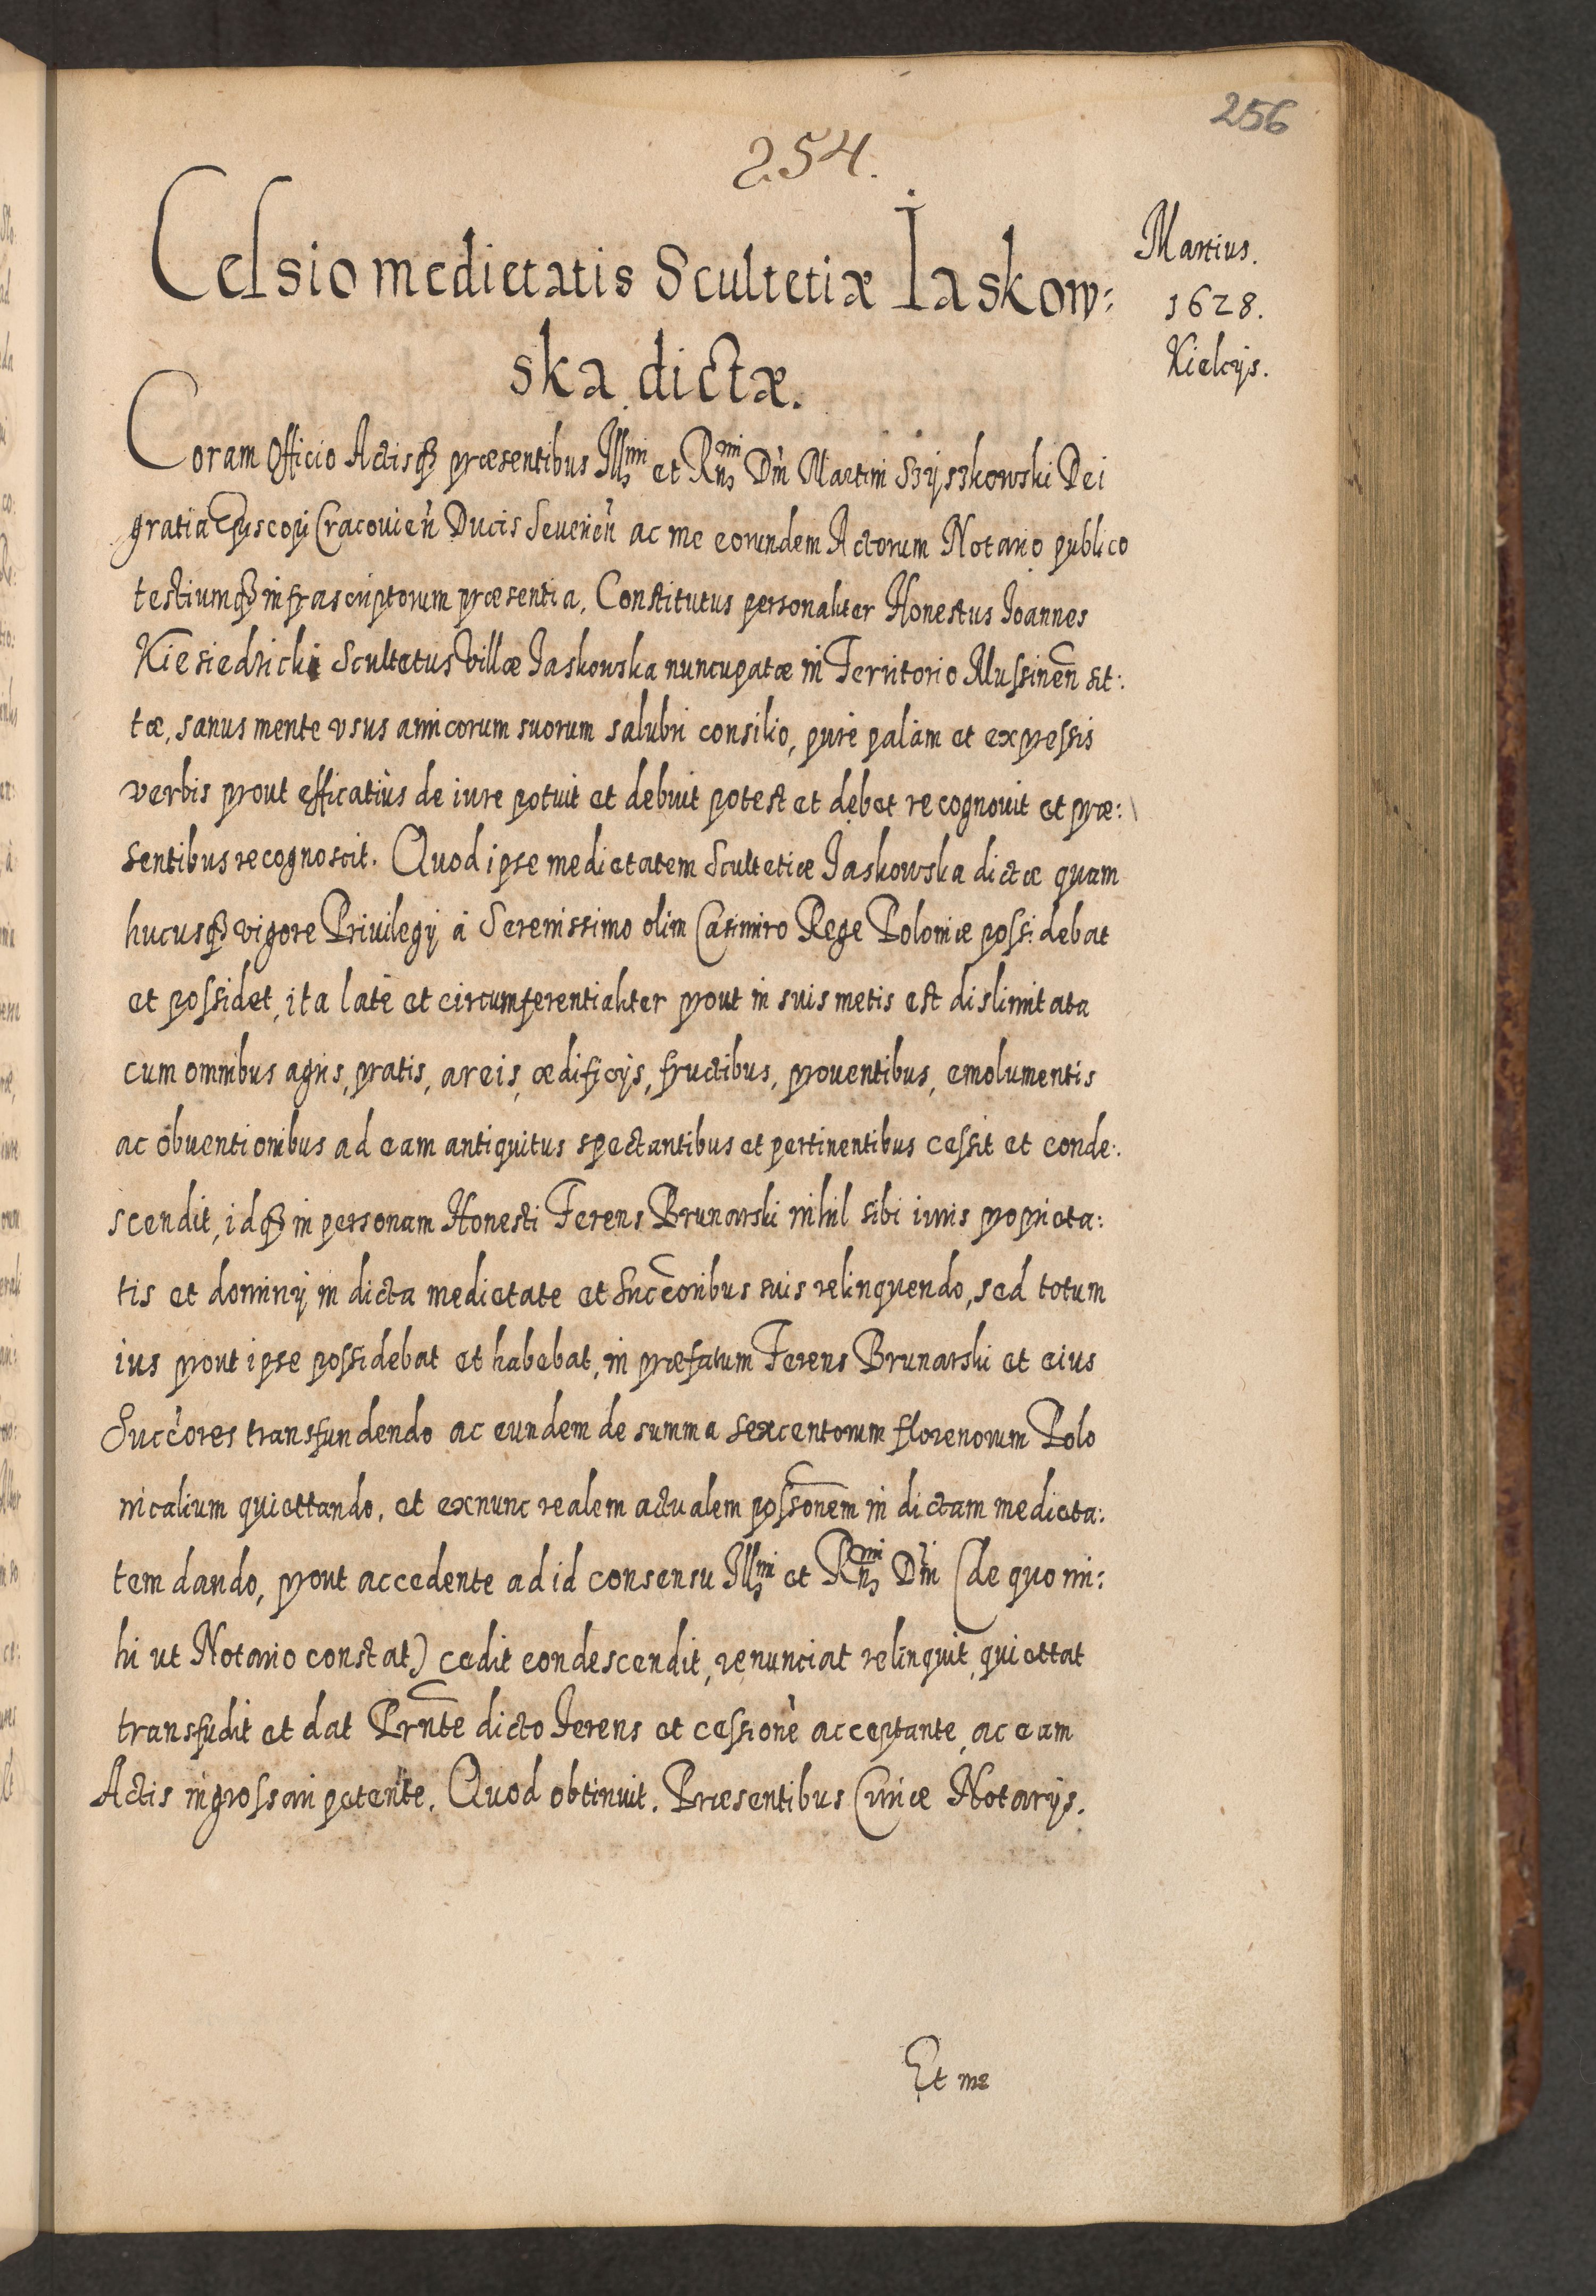 256
254.
Martius.
1628.
Kielcijs.
Cessio medietatis Scultetiæ Iaskow:
ska dictæ.
Coram Officio Actisqȝ præsentibus Illmi et Rndmi Dni Martini Szyszkowski Dei
gratia Episcopi Cracovien Ducis Severien ac me eorundem Actorum Notario publico
testiumqȝ infrascriptorum præsentia. Constitutus personaliter Honestus Ioannes
Kiesiedzicki Scultetus Villæ Iaskowska nuncupatæ in Territorio Mussinen sit:
tæ, sanus mente usus amicorum suorum salubri consilio, purè palàm et expressis
verbis prout efficatiùs de iure potuit et debuit potest et debet recognovit et præ:
sentibus recognoscit. Quod ipse medietatem Scultetiæ Iaskowska dictæ quam
hucusqȝ vigore Privilegij à Serenissimo olim Casimiro Rege Poloniæ possidebat
et possidet, ita latè et circumferentialiter prout in suis metis est dislimitata
cum omnibus agris, pratis, areis, ædificijs, fructibus, proventibus, emolumentis
ac obventionibus ad eam antiquitus spectantibus et pertinentibus cessit et conde:
scendit, idqȝ in personam Honesti Ferens Brunarski nihil sibi iuris proprieta:
tis et dominij in dicta medietate et Succoribus suis relinquendo, sed totum
ius prout ipse possidebat et habebat, in præfatum Ferens Brunarski et eius
Succores transfundendo ac eundem de summa sexcentorum florenorum Polo
nicalium quiettando, et exnunc realem actualem possonem in dictam medieta:
tem dando, prout accedente ad id consensu Illmi et Rndmi Dni (de quo mi:
hi ut Notario constat) cedit condescendit, renunciat relinquit, quiettat
transfudit et dat Prnte dicto Ferens et cessione acceptante, ac eam
Actis ingrossari petente. Quod obtinuit. Præsentibus Curiæ Notarijs.
Et me